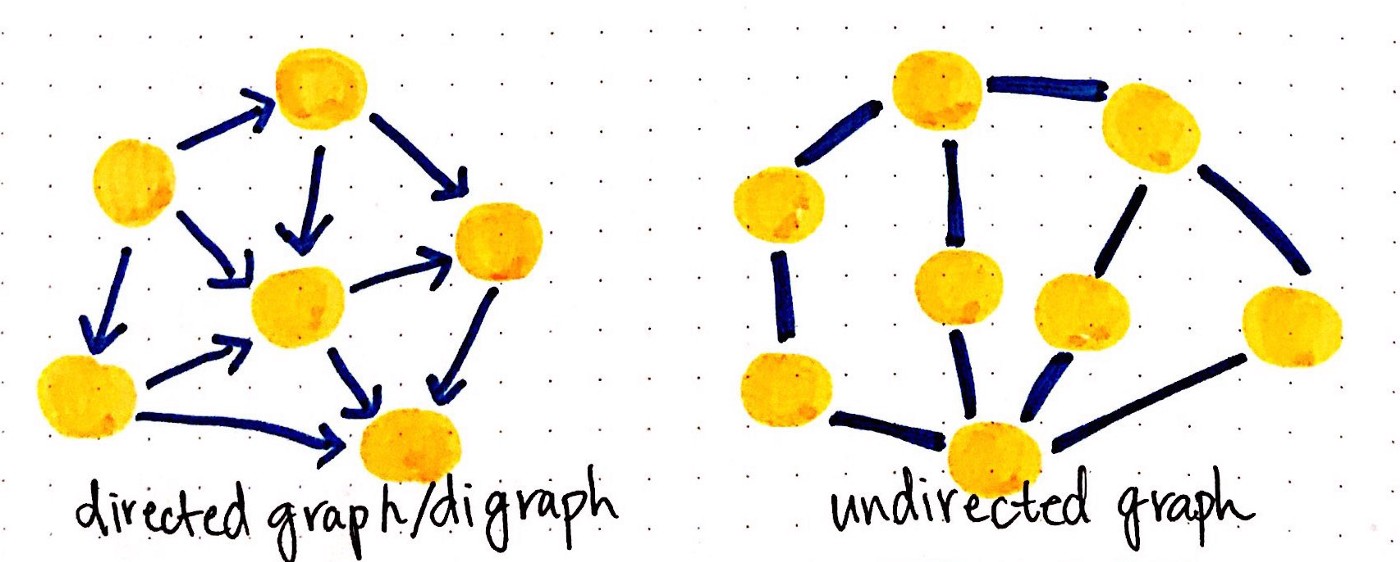 directed graph/digraph
undirected graph